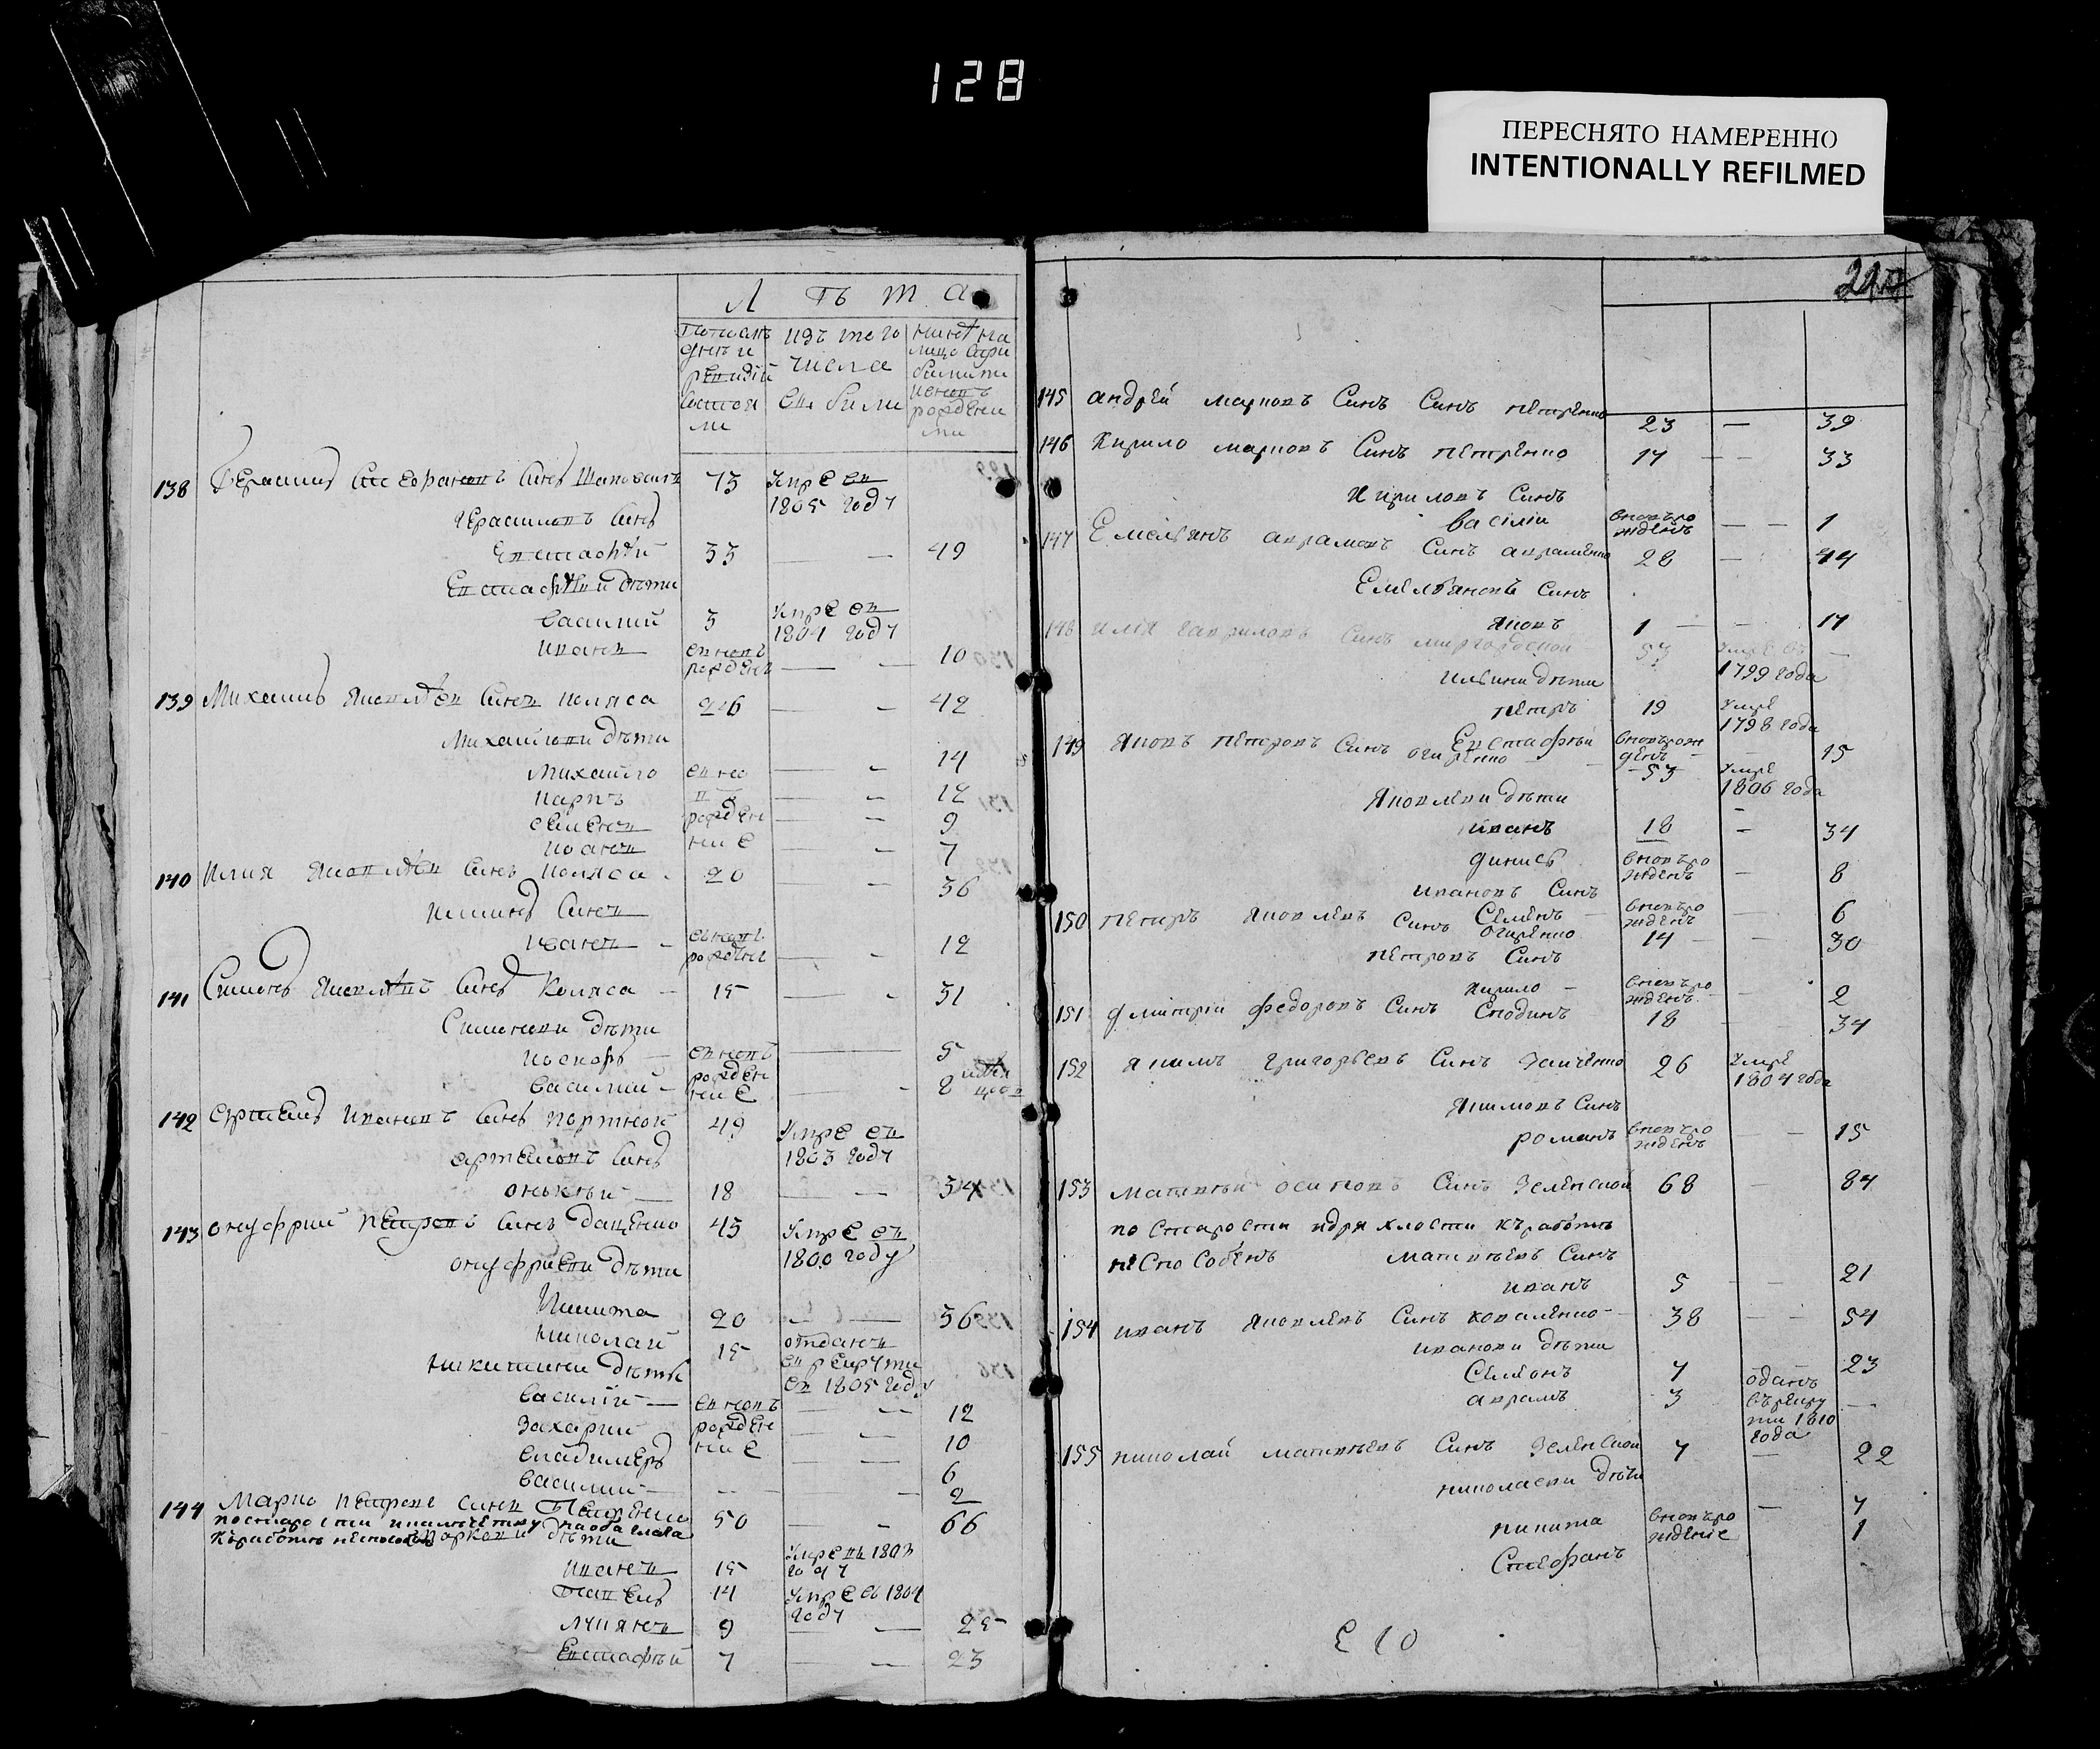 128
ПЕРЕСНЯТО НАМЕРЕННО
INTENTIONALLY REFILMED
Л ѣ т а
изъ того
числа
138 Герасимъ 73 умре въ
1805 году
Герасимовъ синъ
Евстафѣй 33 — 49
Евстафѣеви дѣти
Василий 3 умре въ
1804 году
Иванъ вновь
рожденъ — — 10
139 Михаилъ Яковлѣвъ синъ Коляса 26 — 42
Михайлови дѣти
Михайло вно — - 14
Карпъ въ — - 12
Семенъ рожден — - 9
Иванъ ние — 7
140 Илия Яковлѣвъ синъ Коляса 20 — 36
Иллинъ синъ
Иванъ - вновь
рожденъ — - 12
141 Симонъ Яковлѣвъ синъ Коляса — 15 — - 31
Симонови дѣти
вновь — 5
Василий — рожден
ние - 2
142 Артемъ Ивановъ синъ Портной 49 умре въ
1803 году
Артемовъ синъ
18 — — 34
143 Онуфрий Петровъ синъ Даценко 45 умре въ
1800 году
Онуфриеви дѣти
Никита 20 — 36
Николай 15 отданъ
въ рекрути
въ 1805 году
Никитини дѣти
Василий — вновь — 12
Захарий рожден — 10
Владимеръ ние — 6
Василий — — 2
144 Марко Петровъ синъ Петренко 50 — 66
Маркови дѣти
Иванъ 15 умре въ 1803
году
Павелъ 14 умре въ 1804
году
Лукянъ 9 — 25
Евстафѣй 7 — 23
145 Андрей Марковъ Синъ Синъ Петренко 23 — 39
146 Кирило Марковъ Синъ Петренко 17 — — 33
Кириловъ Синъ
Василіи вновь ро
жденъ — — 1
147 Емельянъ Аврамовъ Синъ Авраменко 28 — 44
Емельяновъ Синъ
Яковъ 1 — — 17
148 Илія Гавриловъ Синъ Миргородской 53 умре въ —
1799 года
Ильини дѣти
Петръ 19 умре
1798 года
Евстафѣй вновь рож
денъ — — 15
149 Яковъ Петровъ Синъ Огиренко 53 умре
1806 года
Яковлеви дѣти
Иванъ 18 — 34
Динисъ вновь ро
жденъ — 8
Ивановъ Синъ
Семенъ — вновь ро
жденъ — 6
150 Петръ Яковлевъ Синъ Огиренко 14 — — 30
Петровъ Синъ
Кирило — вновь ро
жденъ — 2
151 Дмітрій Федоровъ Синъ 18 34
152 Якимъ Григорьевъ Синъ Заиченко 26 умре
1804 года
Якимовъ Синъ
Романъ вновь ро
жденъ — — 15
153 Матвѣй Осиповъ Синъ Зеленской 68 — 84
по старости и дряхлости къ работѣ
не способенъ Матвѣевъ Синъ
Иванъ 5 — — 21
154 Иванъ Яковлевъ Синъ Коваленко — 38 — — 54
Иванови дѣти
Семіонъ 7 23
Аврамъ 3 оданъ
въ рекру
ти 1810
года —
155 Николай Матвѣевъ Синъ Зеленской 7 — 22
Николаеви дѣти
Никита вновь ро
ждение — 7
Стефанъ 1